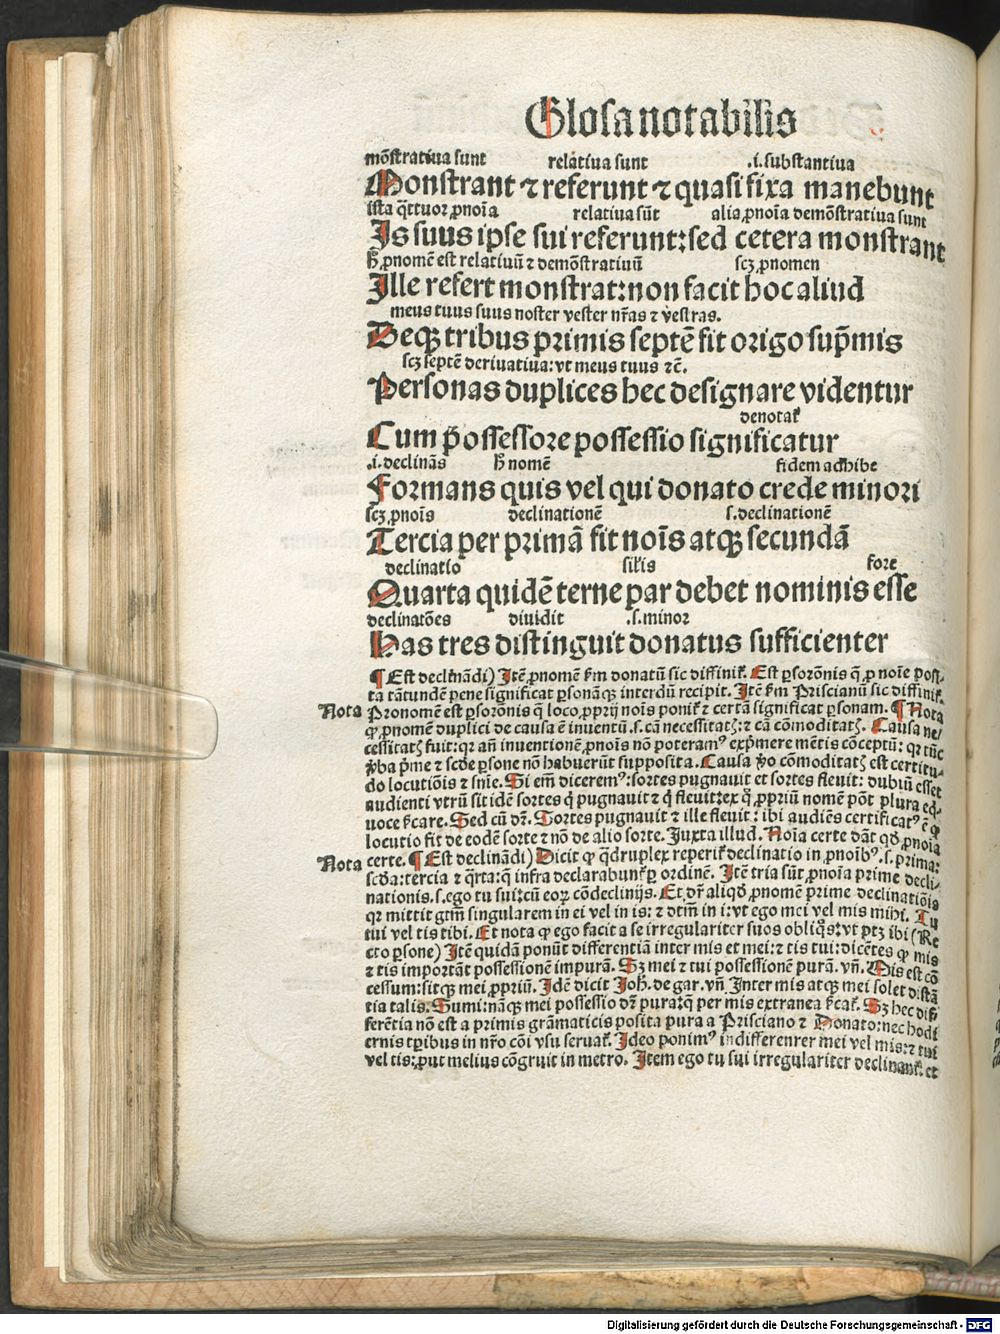 Glosa notabilis
mõstratiua sunt relatiua sunt .i. substantiua
Monstrant ⁊ referunt ⁊ quasi fixa manebunt
ista q̃ttuor ꝓnoĩa relatiua sũt alia ꝓnoĩa demõstratiua sunt
Is suus ipse sui referunt: sed cetera monstrant
ꝓnomẽ est relatiuũ ⁊ demõstratiuũ scꝫ ꝓnomen
Ille refert monstrat: non facit hoc aliud
meus tuus suus noster vester nr̃as ⁊ vestras.
Deqꝫ tribus primis septẽ fit origo sup̃mis
scꝫ septẽ deriuatiua: vt meus tuus ⁊c̃.
Personas duplices hec designare videntur
denotat̃
Cum p̃ossessore possessio significatur
.i. declinãs nomẽ fidem adhibe
Formans quis vel qui donato crede minori
scꝫ ꝓnoĩs declinationẽ s. declinationẽ
Tercia per primã fit noĩs atqꝫ secundã
declinatio sil̃is fore
Quarta quidẽ terne par debet nominis esse
declinatões diuidit .s. minor
Has tres distinguit donatus sufficienter
¶ Est declinãdi) Itẽ ꝓnomẽ s̃m donatũ sic diffinit̃. Est ꝑs orõnis q̃ ꝓ noĩe posi-
ta tãtundẽ pene significat ꝑsonãqꝫ interdũ recipit. Itẽ s̃m Priscianũ sic diffinit̃.
Nota Pronomẽ est ꝑs orõnis q̃ loco ꝓprij noĩs ponit̃ ⁊ certã significat ꝑsonam. ¶ Nota
ꝙ ꝓnomẽ duplici de causa ẽ inuentũ .s. cã necessitatꝭ: ⁊ cã cõmoditatꝭ. Causa ne/
cessitatꝭ fuit: qꝛ añ inuentionẽ ꝓnoĩs nõ poteramꝰ exp̃mere mẽtis cõceptũ: qꝛ tũc
v̾ba p̃me ⁊ scd̃e ꝑsone nõ habuerũt supposita. Causa v̾o cõmoditatꝭ est certitu-
do locutiõis ⁊ sñie. Si em̃ diceremꝰ: sortes pugnauit et sortes fleuit: dubiũ esset
audienti vtrũ sit idẽ sortes q̇ pugnauit ⁊ q̇ fleuit: ex q̊ ꝓpriũ nomẽ põt plura eq-
uoce s̃care. Sed cũ dr̃. Sortes pugnauit ⁊ ille fleuit: ibi audiẽs certificatꝰ ẽ ꝙ
locutio fit de eodẽ sorte ⁊ nõ de alio sorte. Iuxta illud. Noĩa certe dãt qd̃ ꝓnoĩa
Nota certe. ¶ Est declinãdi) Dicit ꝙ q̃druplex reperit̃ declinatio in ꝓnoĩbꝰ .s. prima:
scd̃a: tercia ⁊ q̃rta: q̃ infra declarabunt̃ ꝑ ordinẽ. Itẽ tria sũt ꝓnoĩa prime decli-
nationis .s. ego tu sui: cũ eoꝝ cõdeclinijs. Et dr̃ aliqd̃ ꝓnomẽ prime declinatiõis
qꝛ mittit gtm̃ singularem in ei vel in is: ⁊ dtm̃ in i: vt ego mei vel mis mihi. Tu
tui vel tis tibi. Et nota ꝙ ego facit a se irregulariter suos obliq̃s: vt ptꝫ ibi (Re
cto ꝑsone) Itẽ quidã ponũt differentiã inter mis et mei: ⁊ tis tui: dicẽtes ꝙ mis
⁊ tis importãt possessionẽ impurã. Sꝫ mei ⁊ tui possessionẽ purã. vñ. Mis est cõ
cessum: sit qꝫ mei ꝓpriũ. Idẽ dicit Joh̃. de gar. vñ. Inter mis atqꝫ mei solet distã
tia talis. Sumi: nãqꝫ mei possessio dr̃ pura: q̃ per mis extranea s̃cat̃. Sꝫ hec dif
ferẽtia nõ est a primis grãmaticis posita puta a Prisciano ⁊ Donato: nec hodi
ernis tꝑibus in nr̃o cõi vsu seruat̃. Ideo ponimꝰ indifferenter mei vel mis: ⁊ tui
vel tis: ꝓut melius cõgruit in metro. Item ego tu sui irregulariter declinant̃. et
Digitalisierung gefördert durch die Deutsche Forschungsgemeinschaft - DFG